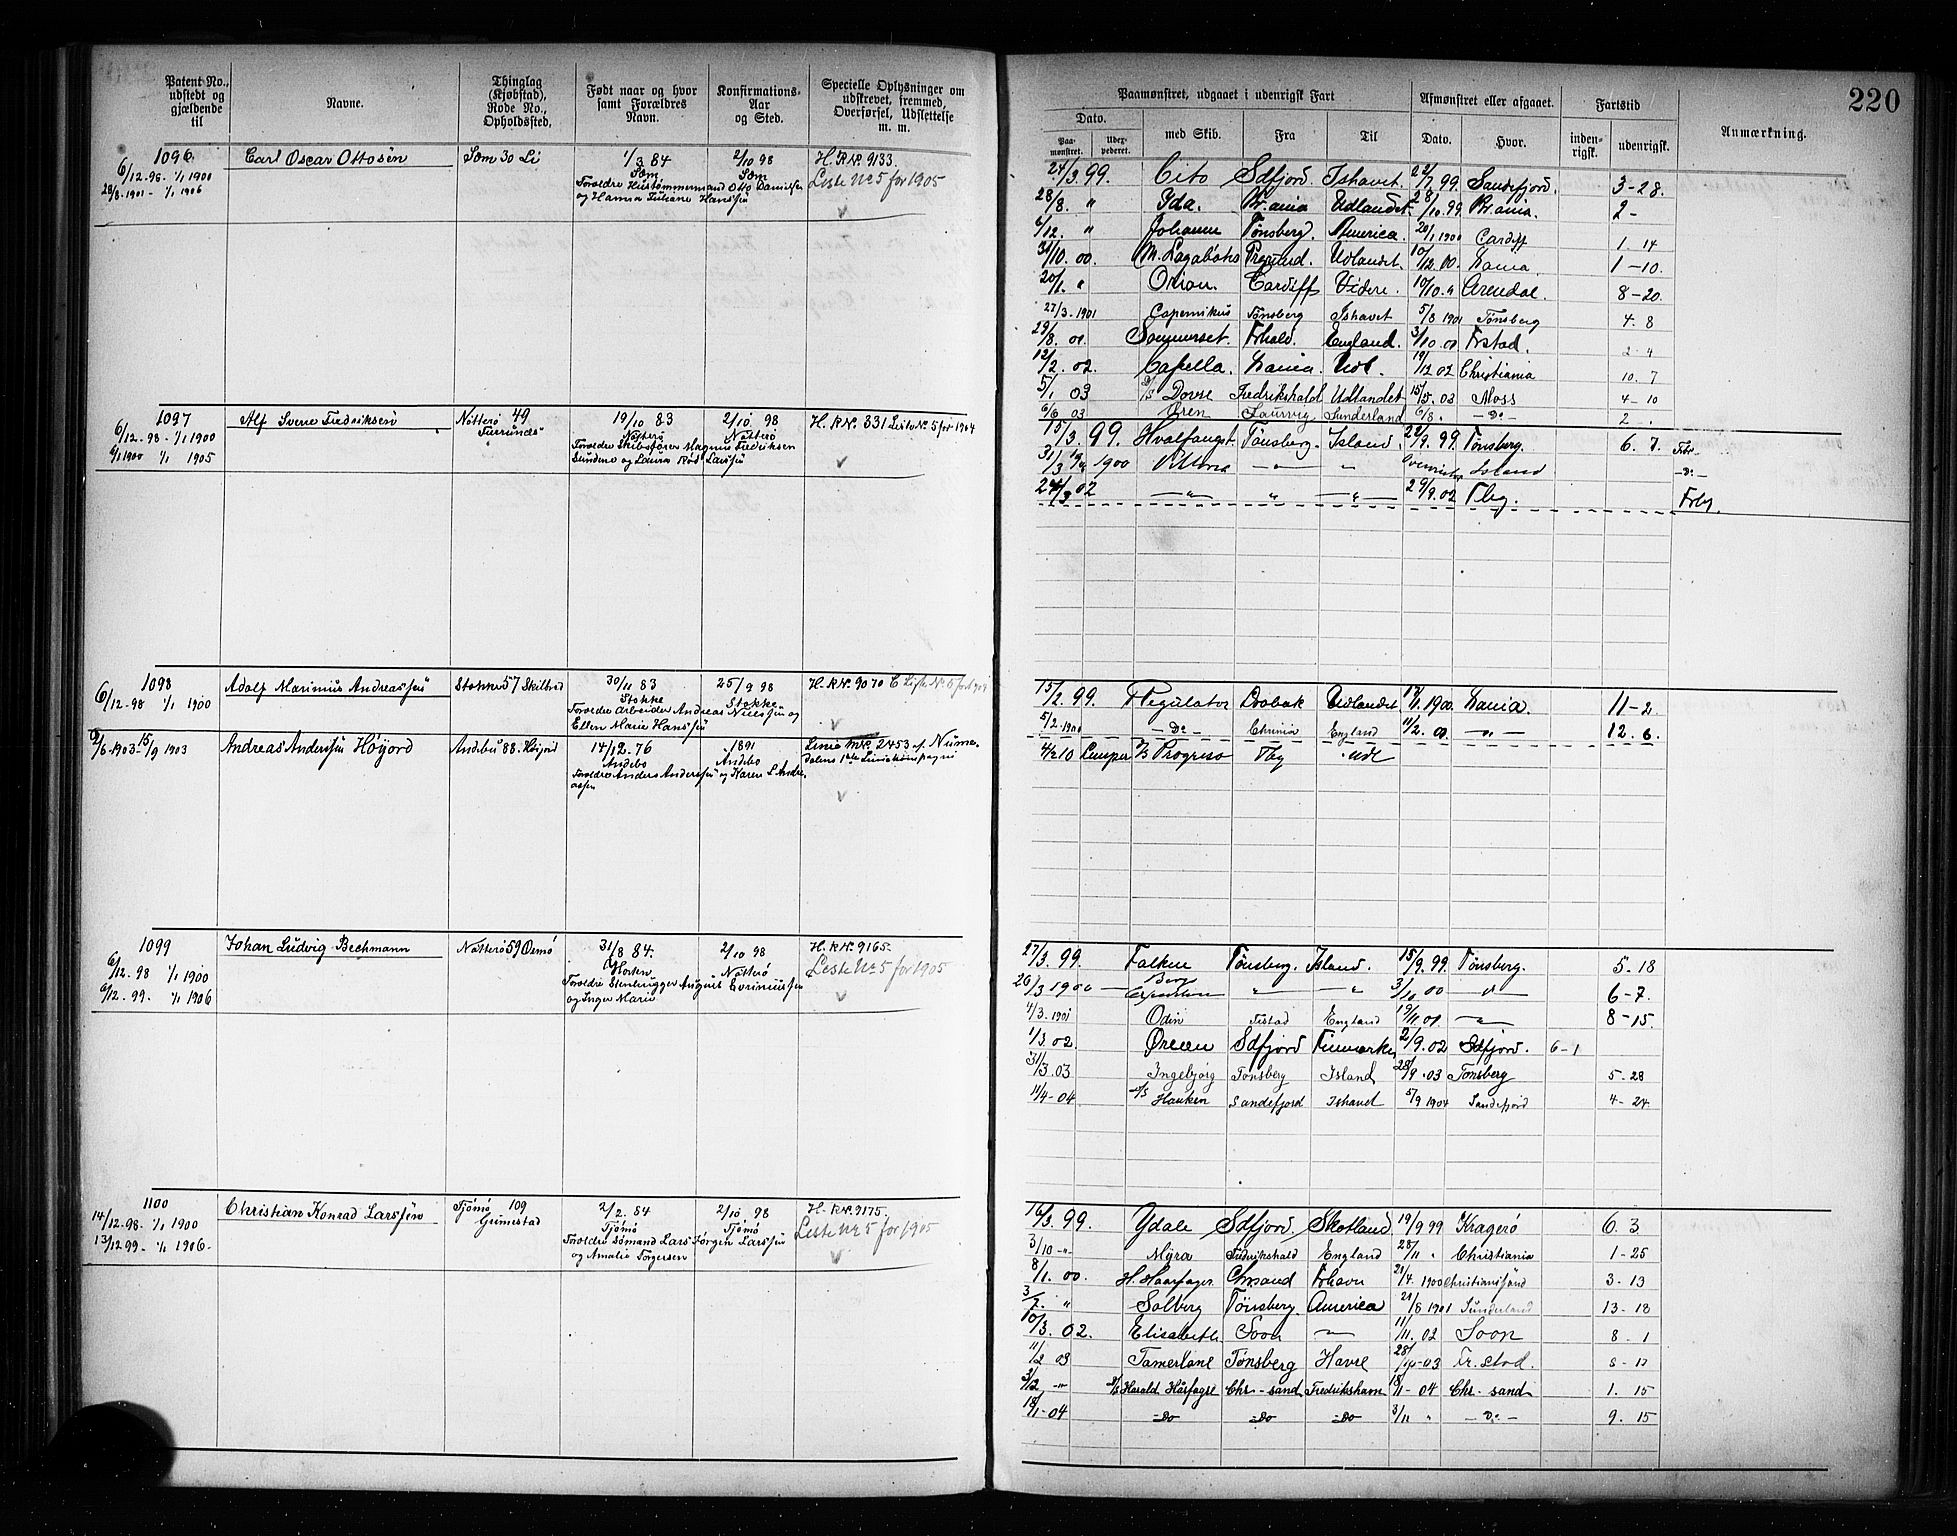 220
Patent No., udstedt og gjældende til
Navne.
Thinglag (Kjøbstad), Rode No., Opholdssted.
Født naar og hvor samt Forældres Navn.
Konfirmations- Aar og Sted.
Specielle Oplysninger om udskrevet, fremmed, Overførsel, Udslettelse m. m.
1096 Carl Oscar Ottosen Sem 30 Li 1/3 84 2/10 98 H.R.No. 9133.
6/12-98 - 1/1 1900 Sem Sem Liste No 5 for 1905
28/8-1901 - 1/1 1906 Forældre Hustømmermand Otto Danielsen
og Hanna Juliane Hanssen
1097 Alf Sverre Fredriksen Nøtterø 49 19/10 83 2/10 98 H. R No. 331 Liste No 5 for 1904
6/12-98 - 1/1 1900 Nøtterø Nøtterø
1/1 1905 Forældre Skibsfører Magnus Fredriksen
og Laura Larssen
1098 Adolf Marinius Andreassen Stokke 57 30/11 83 25/9 98 H. R No. 9070
6/12-98 1/1 1900 Stokke Stokke
Forældre Arbeider Andreas Nielssen og
Ellen Marie Hanssen
1903 - 15/9 1903 Andreas Anderssen Höyjord Andebu 88. Höijord 14/12. 76 1891 Linie No 2453 af Nume-
Andebo Andebo dalens Liniekompagni
Forældre Anders Anderssen og Karen L Andre-
assen
1099 Johan Ludvig Bechmann Nøtterø 59 31/8 84. 2/10 98 H. R No. 9165.
6/12-98 1/1 1900 Nøtterø Liste No 5 for 1905
6/12-99. - 1/1 1906 Forældre Stenhugger August
og Inger Marie
1100 Christian Konrad Larssen Tjömö 109 2/2. 84 2/10 98 H. R No. 9175.
14/12-98. 1/1 1900 Grimestad Tjömö Tjömö Liste No 5 for 1905
13/12 99. 1/1 1906. Forældre Sömand Lars Jörgen Larssen
og Amalie Torgersen
Paamønstret, udgaaet i udenrigsk Fart
Afmønstret eller afgaaet.
Fartstid
Anmærkning.
Dato. med Skib. Fra Til Dato. Hvor. inden- rigsk. udenrigsk.
Paa- mønstret. Uder- pederet.
24/3. 99. Cito Sdfjord. Ishavet. 22/7 99. Sandefjord. 3-28.
28/8. " Yda. Kr.ania Udlandet 28/10. 99. Kr.ania. 2 -
/12. " Johanne Tønsberg. America. 20/1 1900 Cardiff 1 - 14
31/10. 00. M. Lagabøte Udlandet. 10/12. 00. 1 - 10.
20/1. " Orion. Cardiff Videre. 10/10. " Arendal. 8-20.
27/3 - 1901 Copernikus Tønsberg Ishavet 5/8 1901 Tønsberg 4. 8
29/8. 01. Sommerset. Frhald. England. 3/10. 01 Frstad. 2-4
12/2. 02. Capella. Udl. 19/12 02 Christiania 10. 7
5/1 03 S/S Dovre Fredrikshald Udlandet 15/5. 03 Moss 4 - 10
6/6 03 Laurvig Sunderland 6/8. - Do - 2 .
15/3. 99. Hvalfangst. Tønsberg. Island. 22/9. 99. Tønsberg. 6. 7.
31/3 1900 Viktoria - " - " Island - Do -
24/3 02 - " - " - " - 29/9. 02 Tbg. Frby.
15/2. 99. Regulator Drøbak Udlandet 1/1. 1900. 11-2.
5/2 - 1900 - Do - Chrinia England 11/2. 00. - " - 12. 6.
4/2 10 Lemper S/S Progreso Tbg Udl
27/3. 99. Falken Tønsberg. Island. 15/9. 99. Tønsberg. 5-18
26/3 1900 Berg Expedition " - " 3/10 00 - " - 6-7.
4/3. 1901 Odin Frstad England 19/11. 01 - " - 8-15.
1/3. 02 Ørnen Sdfjord Finmarken 2/9. 02 Sdfjord. 6-1
31/3. 03 Ingebjorg Tonsberg Island 28/9. 03 Tonsberg 5-28
11/4 - 04 S/S Hauken Sandefjord Ishavet 5/9 1904 Sandefjord 4 - 24
16/3. 99. Ydale Sdfjord. Skotland. 19/9 99 Kragerö 6. 3
3/10 - " - Myra Fredrikshald England 28/11 " Christiania 1 - 25
8/1. 00. H. Haarfager Chrsand Frhavn 21/4. 1900 Christianssand 3 - 13
3/7. " Solberg Tønsberg. America 21/8 1901 Sunderland 13 - 18
10/3. 02. Elisabeth. Soon - " - 11/11. 02 Soon 8 - 1
11/2 03 Tamerlane Tønsberg Havre 28/10 - 03 Fr. stad. 8 - 17
3/12 - " - S/S Harald Hårfagre Chr.- sand Fredrikshavn 18/1 - 04 Chr - sand 1. 15
18/1 - 04 - Do - Do - Do 3/11 " - Do - 9. 15